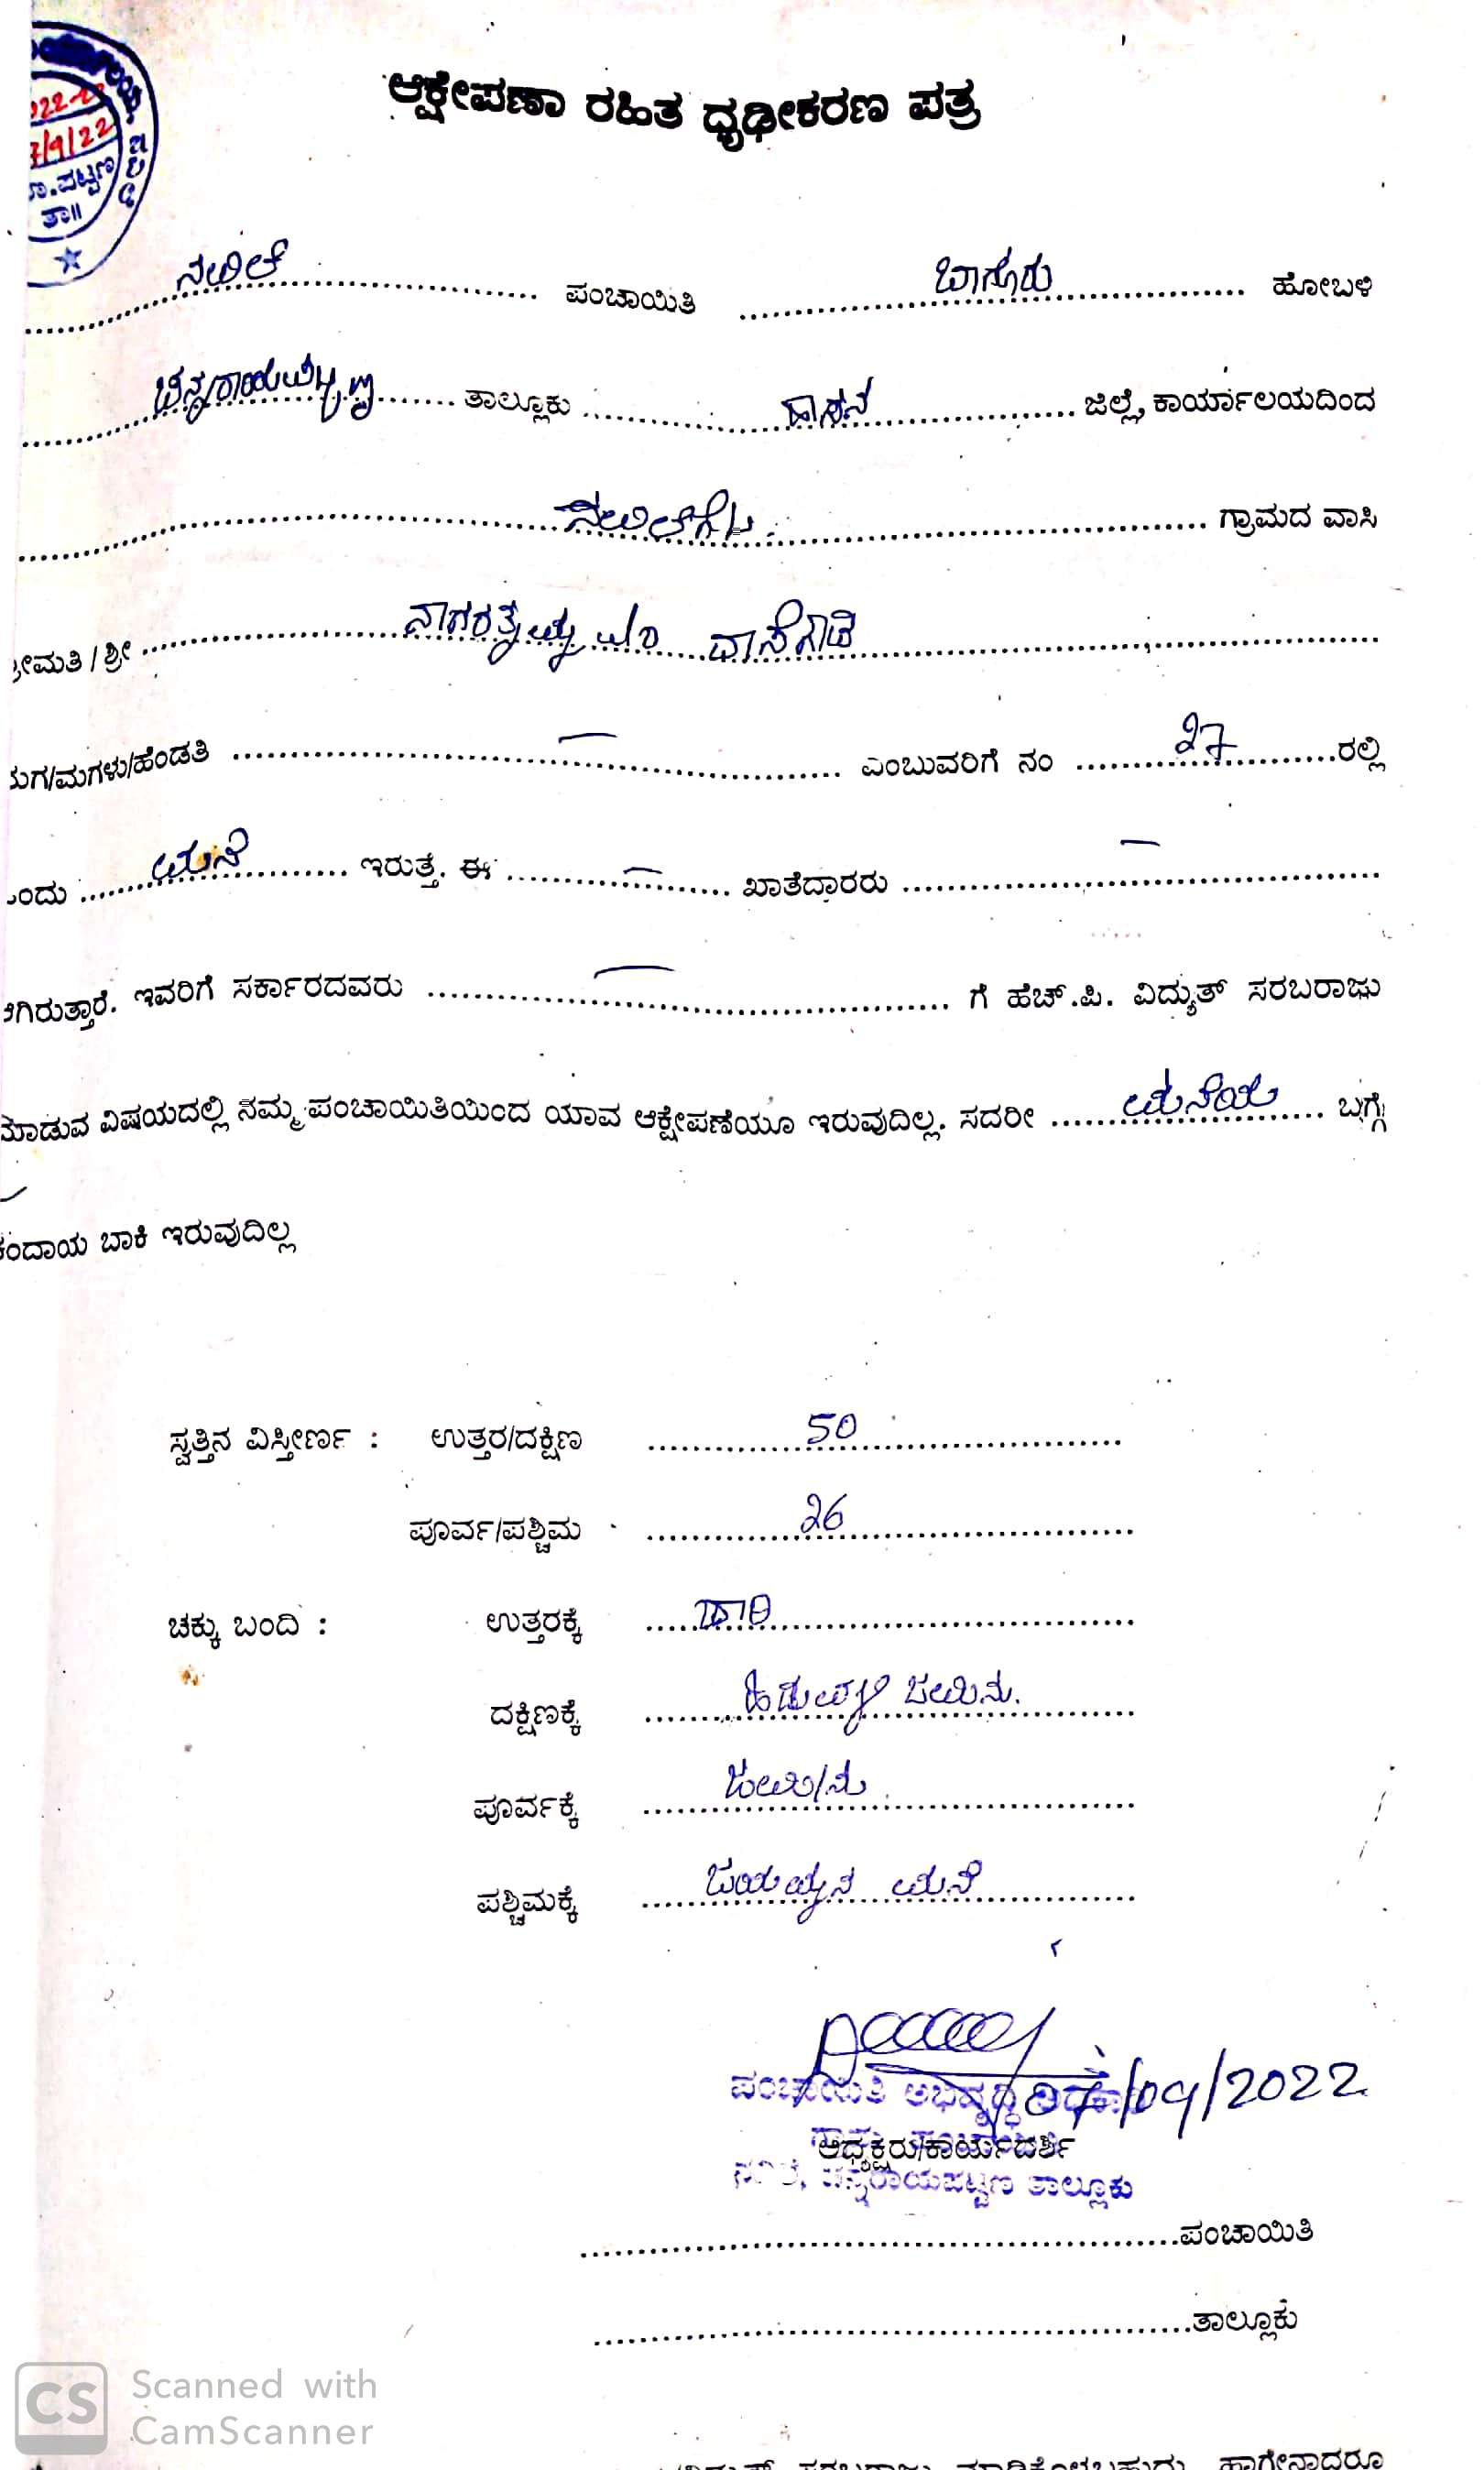 ಆಕ್ಷೇಪಣಾ ರಹಿತ ಧೃಢೀಕರಣ ಪತ್ರ
022-2
7/9/22
ರಾ.ಪಟ್ಟಣ
ತಾ||
ನವಿಲೆ ಪಂಚಾಯಿತಿ ಬಾಗೂರು ಹೋಬಳಿ
ಚನ್ನರಾಯಪಟ್ಟಣ ತಾಲ್ಲೂಕು ಹಾಸನ ಜಿಲ್ಲೆ, ಕಾರ್ಯಾಲಯದಿಂದ
ಗ್ರಾಮದ ವಾಸಿ
ೀಮತಿ / ಶ್ರೀ ನಾಗರತ್ನಮ್ಮ ದಾಸೆಗೌಡ
ಮಗ/ಮಗಳು/ಹೆಂಡತಿ — ಎಂಬುವರಿಗೆ ನಂ 27 ರಲ್ಲಿ
ಒಂದು ಮನೆ ಇರುತ್ತೆ. ಈ — ಖಾತೆದಾರರು —
ಆಗಿರುತ್ತಾರೆ. ಇವರಿಗೆ ಸರ್ಕಾರದವರು — ಗೆ ಹೆಚ್.ಪಿ. ವಿದ್ಯುತ್ ಸರಬರಾಜು
ಮಾಡುವ ವಿಷಯದಲ್ಲಿ ನಮ್ಮ ಪಂಚಾಯಿತಿಯಿಂದ ಯಾವ ಆಕ್ಷೇಪಣೆಯೂ ಇರುವುದಿಲ್ಲ. ಸದರೀ ಮನೆಯ ಬಗ್ಗೆ
ಕಂದಾಯ ಬಾಕಿ ಇರುವುದಿಲ್ಲ
ಸ್ವತ್ತಿನ ವಿಸ್ತೀರ್ಣ : ಉತ್ತರ/ದಕ್ಷಿಣ 50
ಪೂರ್ವ/ಪಶ್ಚಿಮ 26
ಚಕ್ಕು ಬಂದಿ : ಉತ್ತರಕ್ಕೆ ದಾರಿ
ದಕ್ಷಿಣಕ್ಕೆ ಜಮೀನು.
ಪೂರ್ವಕ್ಕೆ ಜಮೀನು
ಪಶ್ಚಿಮಕ್ಕೆ ಜಯಮ್ಮನ ಮನೆ
07/09/2022
ಪಂಚಾಯಿತಿ ಅಭಿವೃದ್ಧಿ ಅಧಿಕಾರಿ
ಅಧ್ಯಕ್ಷರು/ಕಾರ್ಯದರ್ಶಿ
ಚನ್ನರಾಯಪಟ್ಟಣ ತಾಲ್ಲೂಕು
ಪಂಚಾಯಿತಿ
ತಾಲ್ಲೂಕು
CS Scanned with
CamScanner
ಸರಬರಾಜು ಮಾಡಿಕೊಳ್ಳಬಹುದು. ಹಾಗೇನಾದರೂ